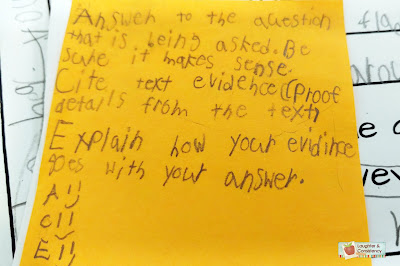 Answer to the question
that is being asked. Be
sure it makes sense.
Cite text evidence (proof
details from the text)
Explain how your evidince
goes with your answer.
A !!
C !!
E !!
flag
Laughter &
Consistency